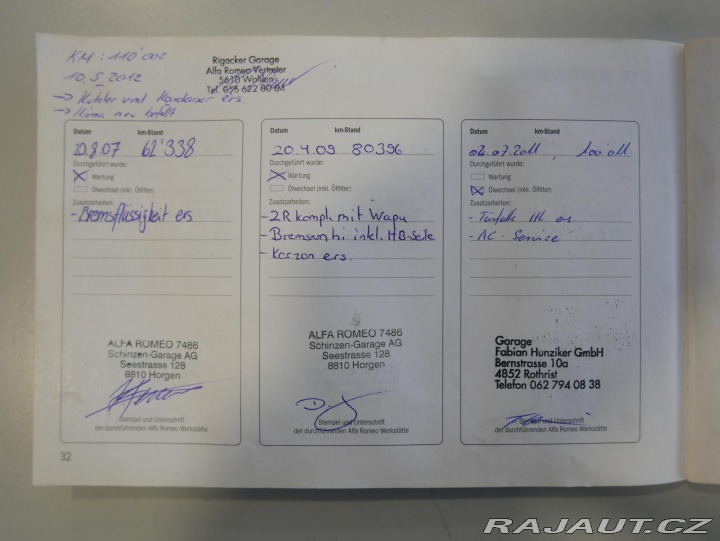 KM: 110'002
Rigacker Garage
Alfa Romeo Vertreter
5610 Wohlen
Tel. 056 622 80 04
10.5.2012
→ Kühler und Kondensor ers
→ Klima neu befüllt
Datum km-Stand
20.8.07 62'338
Durchgeführt wurde:
Wartung
Ölwechsel (inkl. Ölfilter)
Zusatzarbeiten:
- Bremsflüssigkeit ers
ALFA ROMEO 7486
Schinzen-Garage AG
Seestrasse 128
8810 Horgen
Stempel und Unterschrift
der durchführenden Alfa Romeo Werkstätte
Datum km-Stand
20.4.09 80396
Durchgeführt wurde:
Wartung
Ölwechsel (inkl. Ölfilter)
Zusatzarbeiten:
- ZR kompl. mit Wapu
- Bremsen hi inkl. HB-Seile
- Kerzen ers.
ALFA ROMEO 7486
Schinzen-Garage AG
Seestrasse 128
8810 Horgen
Stempel und Unterschrift
der durchführenden Alfa Romeo Werkstätte
Datum km-Stand
04.07.2011 100'011
Durchgeführt wurde:
Wartung
Ölwechsel (inkl. Ölfilter)
Zusatzarbeiten:
- AC-Service
Garage
Fabian Hunziker GmbH
Bernstrasse 10a
4852 Rothrist
Telefon 062 794 08 38
Stempel und Unterschrift
der durchführenden Alfa Romeo Werkstätte
32
RAJAUT.CZ